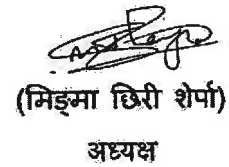 (मिङ्मा छिरी शेर्पा)
अध्यक्ष